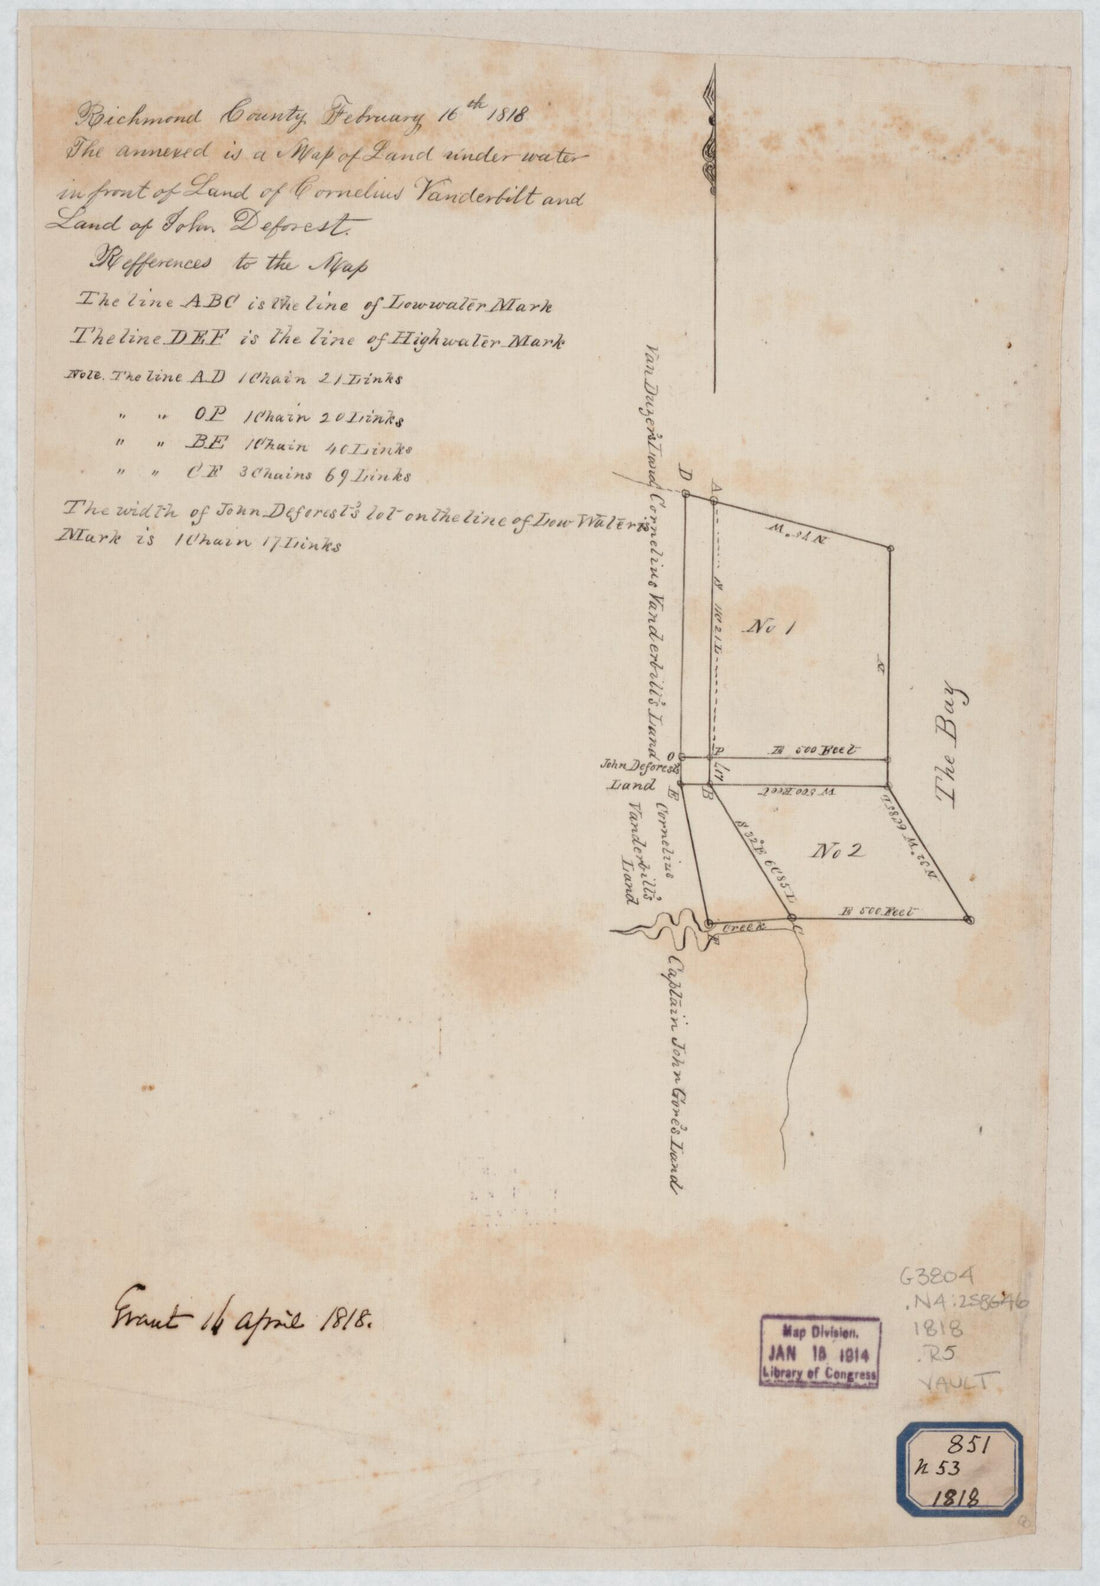 Richmond County February 16th 1818
The annexed is a Map of Land under water
in front of Land of Cornelius Vanderbilt and
Land of John Deforest.
Refferences to the Map
The line ABC is the line of Lowwater Mark
The line DEF is the line of Highwater Mark
Note. The line AD 1Chain 21Links
" " OP 1Chain 20Links
" " BE 1Chain 40Links
" " CF 3Chains 69Links
The width of John Deforest's lot on the line of Low Water
Mark is 1Chain 17Links
Van Duzer's Land
Cornelius Vanderbilt's Land
D
A
N 76° W
No 1
S
11C 21L
N
The Bay
O
P
E 500 Feet
John Deforest's
Land
E
B
1/17
W 500 Feet
Cornelius
Vanderbilt's
Land
S 32° E 6C 85 L
No 2
N 32° W 6C 85 L
E 500 Feet
F
Creek
C
Captain John Gore's Land
Grant 16 April 1818.
G3804
.N4:2S8G46
1818
.R5
VAULT
Map Division.
JAN 18 1914
Library of Congress
851
n 53
1818